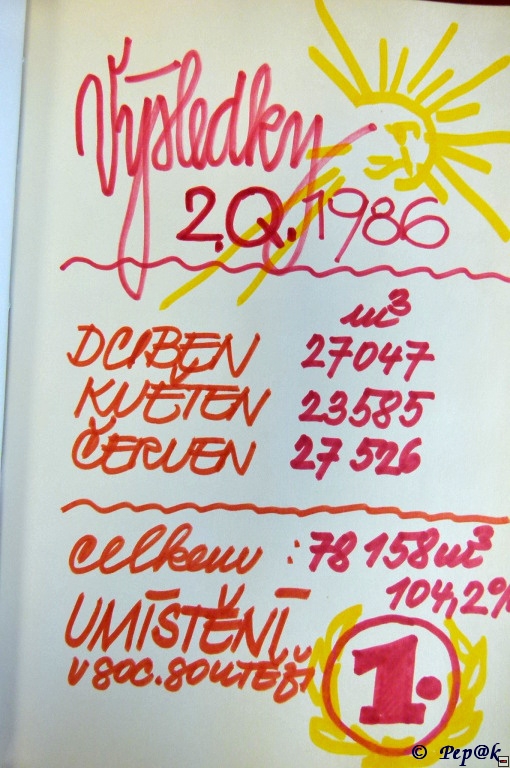 Výsledky
2.Q. 1986
m³
DUBEN 27047
KVĚTEN 23585
ČERVEN 27526
celkem: 78158m³
104,2%
UMÍSTĚNÍ
V SOC. SOUTĚŽI
1.
© Pep@k